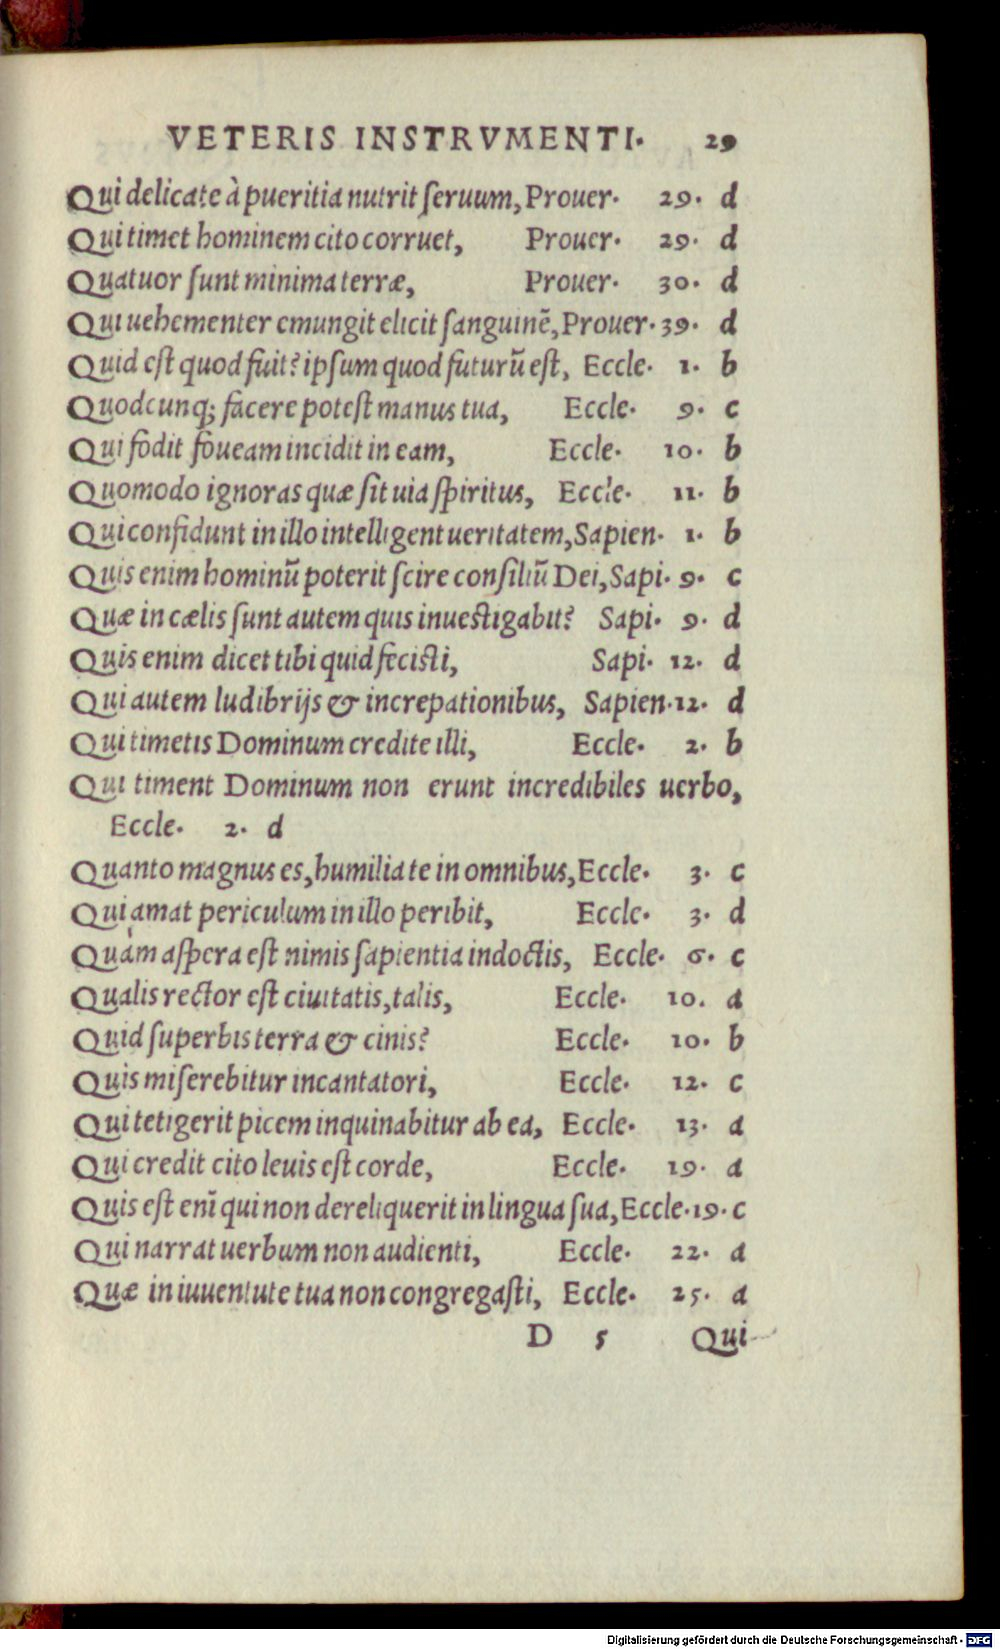 VETERIS INSTRVMENTI. 29
Qui delicate à pueritia nutrit seruum, Prouer. 29. d
Qui timet hominem cito corruet, Prouer. 29. d
Quatuor sunt minima terræ, Prouer. 30. d
Qui uehementer emungit elicit sanguinē, Prouer. 39. d
Quid est quod fuit? ipsum quod futurū est, Eccle. 1. b
Quodcunq; facere potest manus tua, Eccle. 9. c
Qui fodit foueam incidit in eam, Eccle. 10. b
Quomodo ignoras quæ sit uia spiritus, Eccle. 11. b
Qui confidunt in illo intelligent ueritatem, Sapien. 1. b
Quis enim hominū poterit scire consiliū Dei, Sapi. 9. c
Quæ in cælis sunt autem quis inuestigabit? Sapi. 9. d
Quis enim dicet tibi quid fecisti, Sapi. 12. d
Qui autem ludibrijs & increpationibus, Sapien. 12. d
Qui timetis Dominum credite illi, Eccle. 2. b
Qui timent Dominum non erunt incredibiles uerbo,
Eccle. 2. d
Quanto magnus es, humilia te in omnibus, Eccle. 3. c
Qui amat periculum in illo peribit, Eccle. 3. d
Quàm aspera est nimis sapientia indoctis, Eccle. 6. c
Qualis rector est ciuitatis, talis, Eccle. 10. a
Quid superbis terra & cinis? Eccle. 10. b
Quis miserebitur incantatori, Eccle. 12. c
Qui tetigerit picem inquinabitur ab ea, Eccle. 13. a
Qui credit cito leuis est corde, Eccle. 19. a
Quis est enī qui non dereliquerit in lingua sua, Eccle. 19. c
Qui narrat uerbum non audienti, Eccle. 22. a
Quæ in iuuentute tua non congregasti, Eccle. 25. a
D 5 Qui
Digitalisierung gefördert durch die Deutsche Forschungsgemeinschaft - DFG